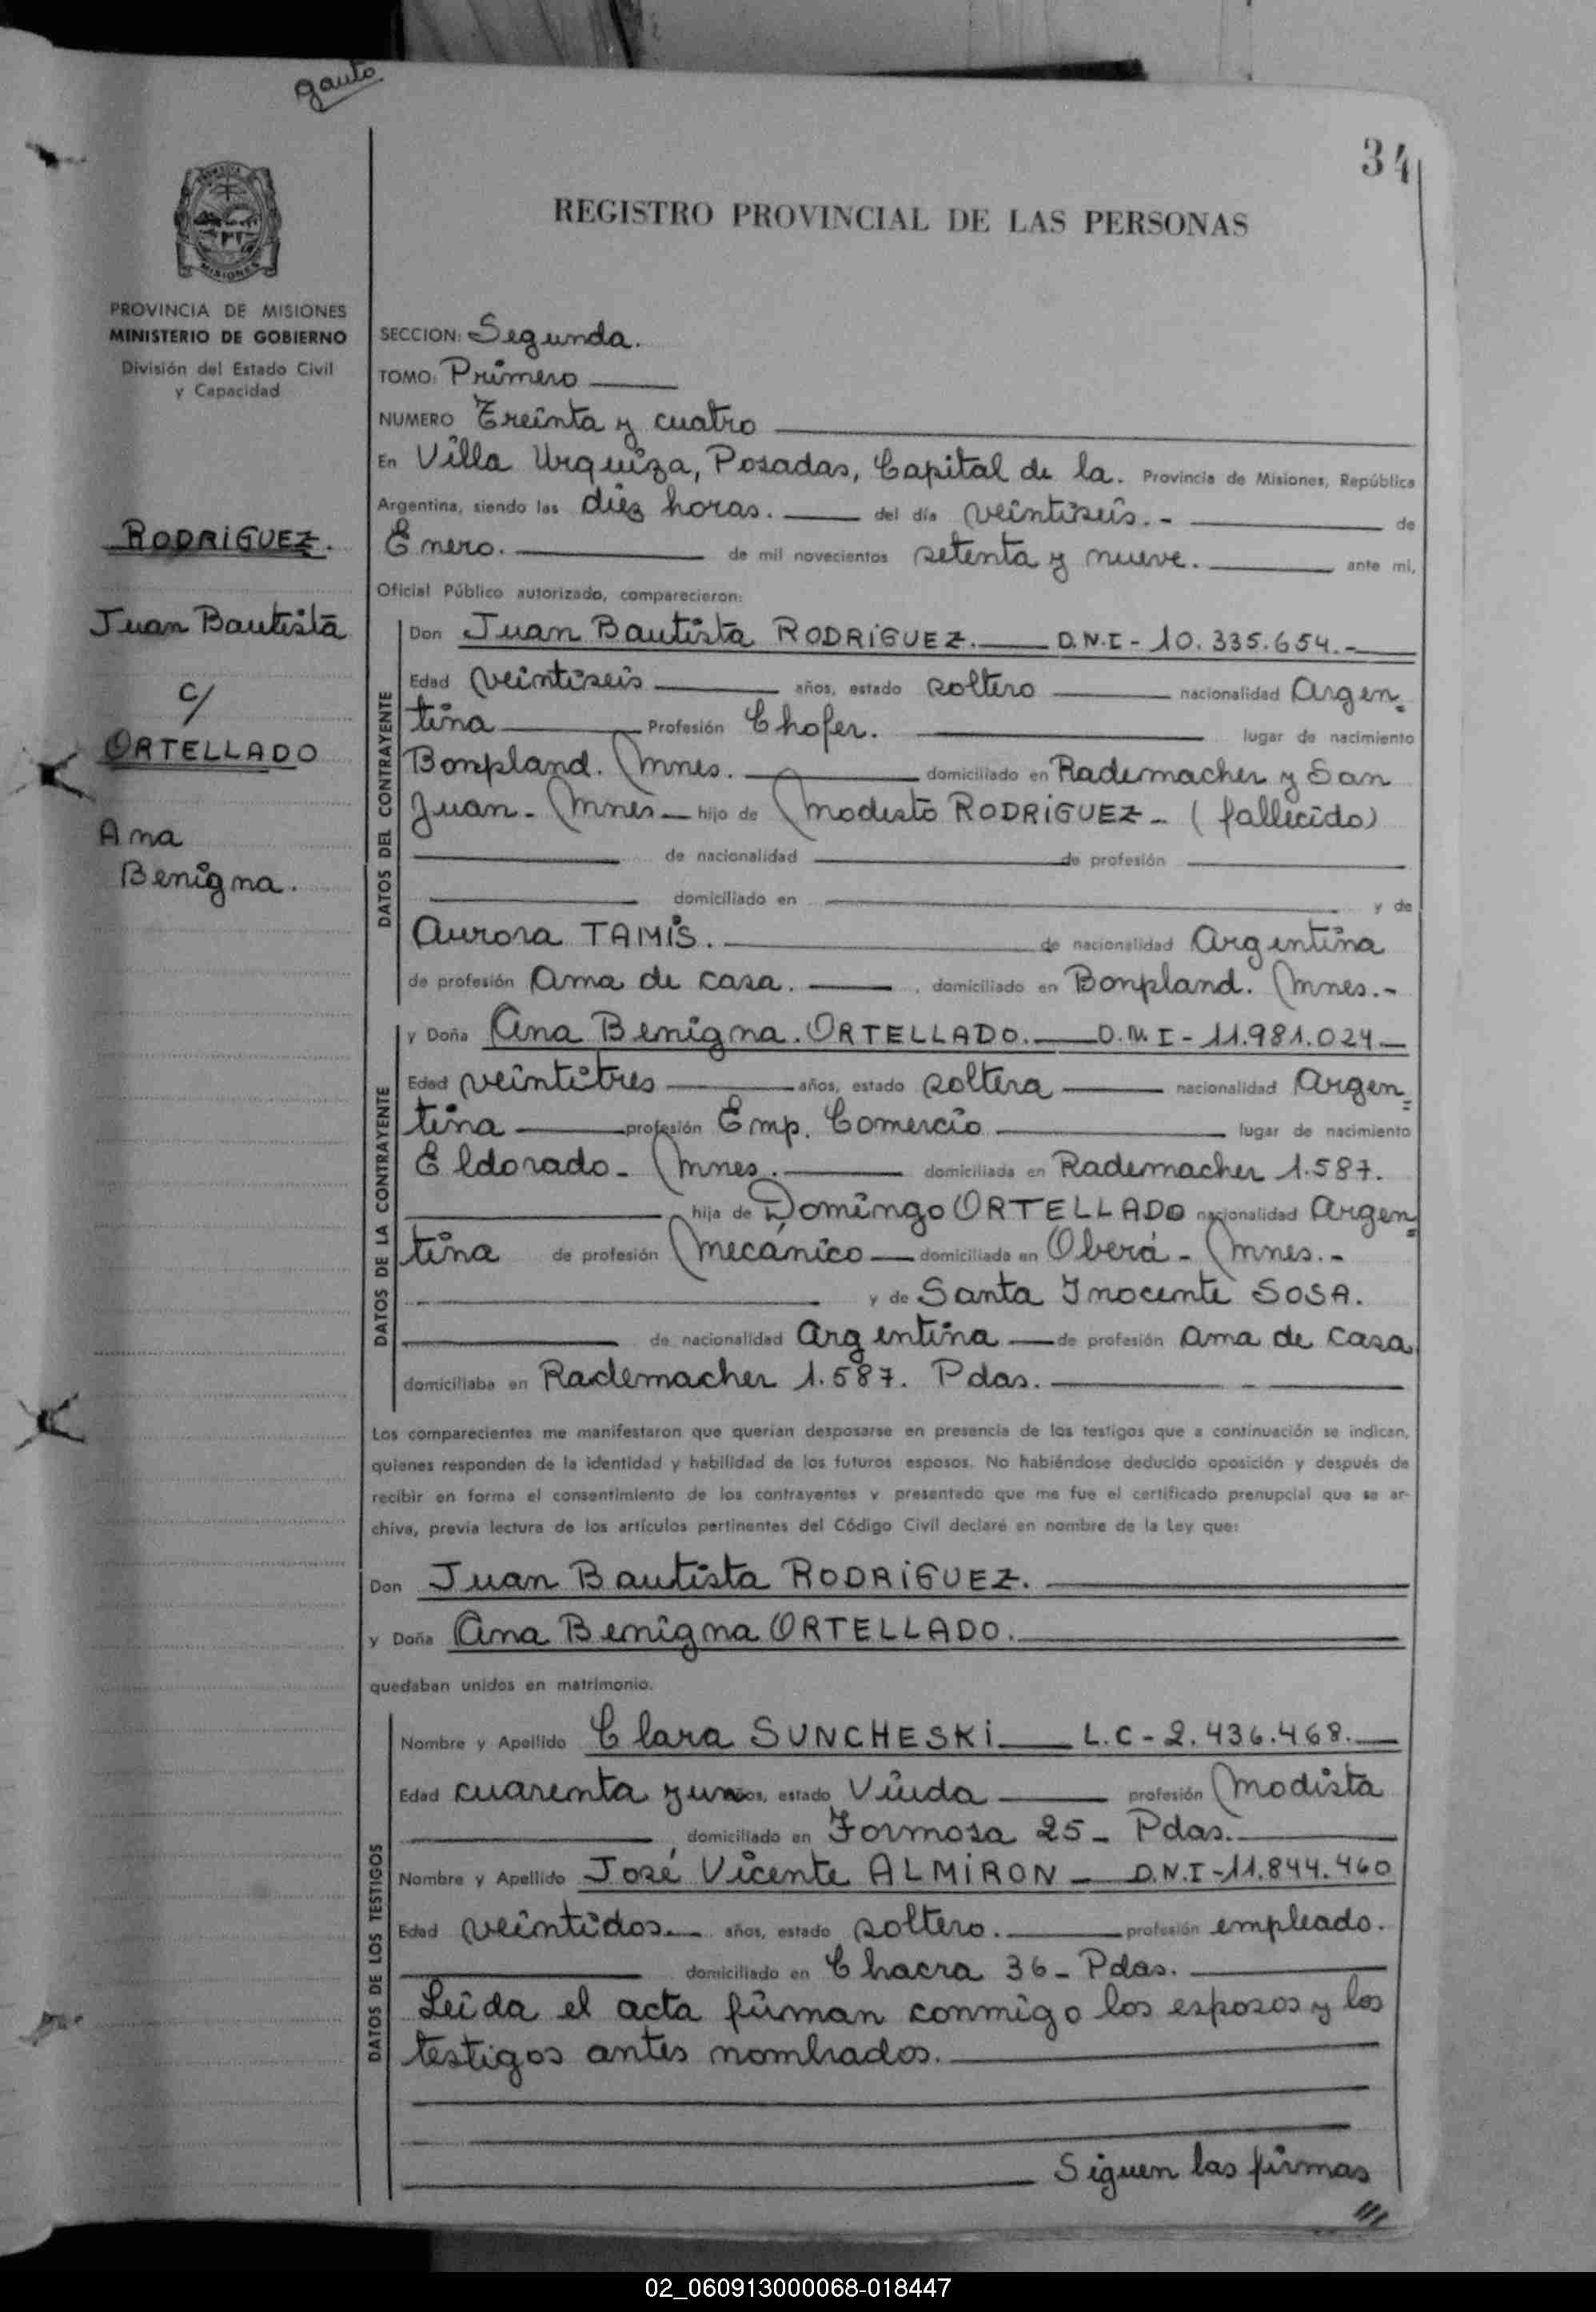 gauto
34
REGISTRO PROVINCIAL DE LAS PERSONAS
MISIONES
PROVINCIA DE MISIONES
MINISTERIO DE GOBIERNO
División del Estado Civil
y Capacidad
RODRIGUEZ.
Juan Bautista
c/
ORTELLADO
Ana
Benigna.
SECCION: Segunda.
TOMO: Primero
NUMERO Treinta y cuatro
En Villa Urquiza, Posadas, Capital de la. Provincia de Misiones, República
Argentina, siendo las diez horas. del día veintiseis.- de
Enero. de mil novecientos setenta y nueve. ante mi,
Oficial Público autorizado, comparecieron:
DATOS DEL CONTRAYENTE
Don Juan Bautista RODRIGUEZ. D.N.I - 10.335.654.-
Edad veintiseis años, estado soltero nacionalidad Argen=
tina Profesión Chofer. lugar de nacimiento
Bonpland. Mnes. domiciliado en Rademacher y San
Juan - Mnes hijo de Modesto RODRIGUEZ - (fallecido)
de nacionalidad de profesión
domiciliado en y de
Aurora TAMIS. de nacionalidad Argentina
de profesión Ama de casa. domiciliado en Bonpland. Mnes.-
DATOS DE LA CONTRAYENTE
y Doña Ana Benigna. ORTELLADO. D.N.I - 11.981.024
Edad veintitres años, estado soltera nacionalidad Argen=
tina profesión Emp. Comercio lugar de nacimiento
Eldorado - Mnes. domiciliada en Rademacher 1.587.
hija de Domingo ORTELLADO nacionalidad Argen=
tina de profesión Mecánico domiciliado en Oberá - Mnes.-
y de Santa Inocente SOSA.
de nacionalidad Argentina de profesión Ama de casa
domiciliaba en Rademacher 1.587. Pdas.
Los comparecientes me manifestaron que querían desposarse en presencia de los testigos que a continuación se indican,
quienes responden de la identidad y habilidad de los futuros esposos. No habiéndose deducido oposición y después de
recibir en forma el consentimiento de los contrayentes y presentado que me fue el certificado prenupcial que se ar-
chiva, previa lectura de los artículos pertinentes del Código Civil declaré en nombre de la Ley que:
Don Juan Bautista RODRIGUEZ.
y Doña Ana Benigna ORTELLADO.
quedaban unidos en matrimonio.
DATOS DE LOS TESTIGOS
Nombre y Apellido Clara SUNCHESKI L.C - 2.436.468.
Edad cuarenta y un años, estado Viuda profesión Modista
domiciliado en Formosa 25 - Pdas.
Nombre y Apellido José Vicente ALMIRON - D.N.I - 11.844.460
Edad veintidos años, estado soltero. profesión empleado.
domiciliado en Chacra 36 - Pdas.
Leida el acta firman conmigo los esposos y los
testigos antes nombrados.
Siguen las firmas
///
02_060913000068-018447